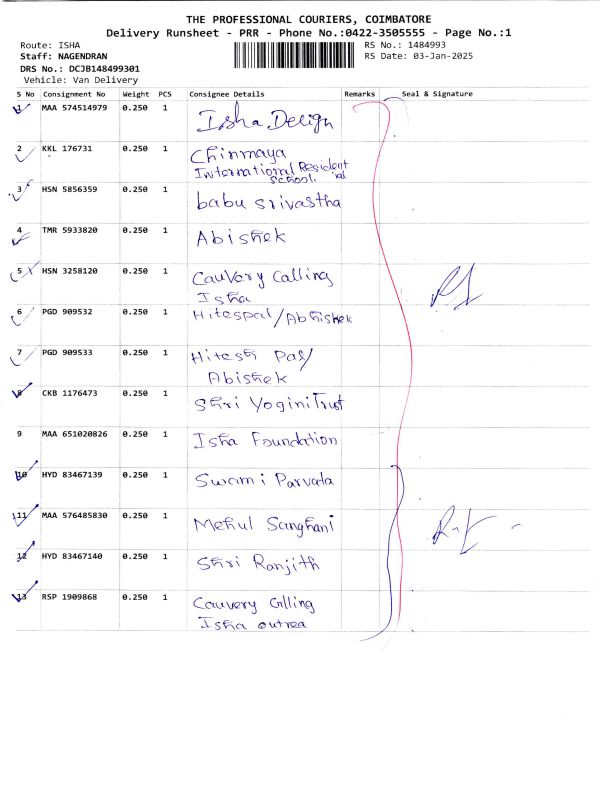 THE PROFESSIONAL COURIERS, COIMBATORE
Delivery Runsheet - PRR - Phone No.:0422-3505555 - Page No.:1
Route: ISHA RS No.: 1484993
Staff: NAGENDRAN RS Date: 03-Jan-2025
DRS No.: DCJB148499301
Vehicle: Van Delivery
S No Consignment No Weight PCS Consignee Details Remarks Seal & Signature
1 MAA 574514979 0.250 1 Isha Design
2 KKL 176731 0.250 1 Chinmaya
International Resident
School.
3 HSN 5856359 0.250 1 babu srivastha
4 TMR 5933820 0.250 1 Abishek
5 HSN 3258120 0.250 1 Cauvery Calling
Isha
6 PGD 909532 0.250 1 Hitespal/Abhishek
7 PGD 909533 0.250 1 Hitesh Pal/
Abishek
8 CKB 1176473 0.250 1 Shri Yogini Trust
9 MAA 651020826 0.250 1 Isha Foundation
10 HYD 83467139 0.250 1 Swami Parvada
11 MAA 576485830 0.250 1 Mehul Sanghani
12 HYD 83467140 0.250 1 Shri Ranjith
13 RSP 1909868 0.250 1 Cauvery Calling
Isha outrea